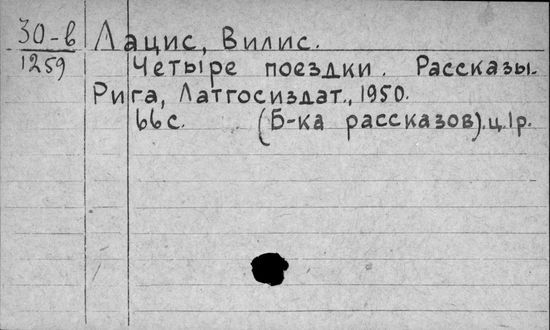 30-в
1259
Лацис, Вилис.
Четыре поездки. Рассказы.
Рига, Латгосиздат., 1950.
66с. (Б-ка рассказов).ц.1р.